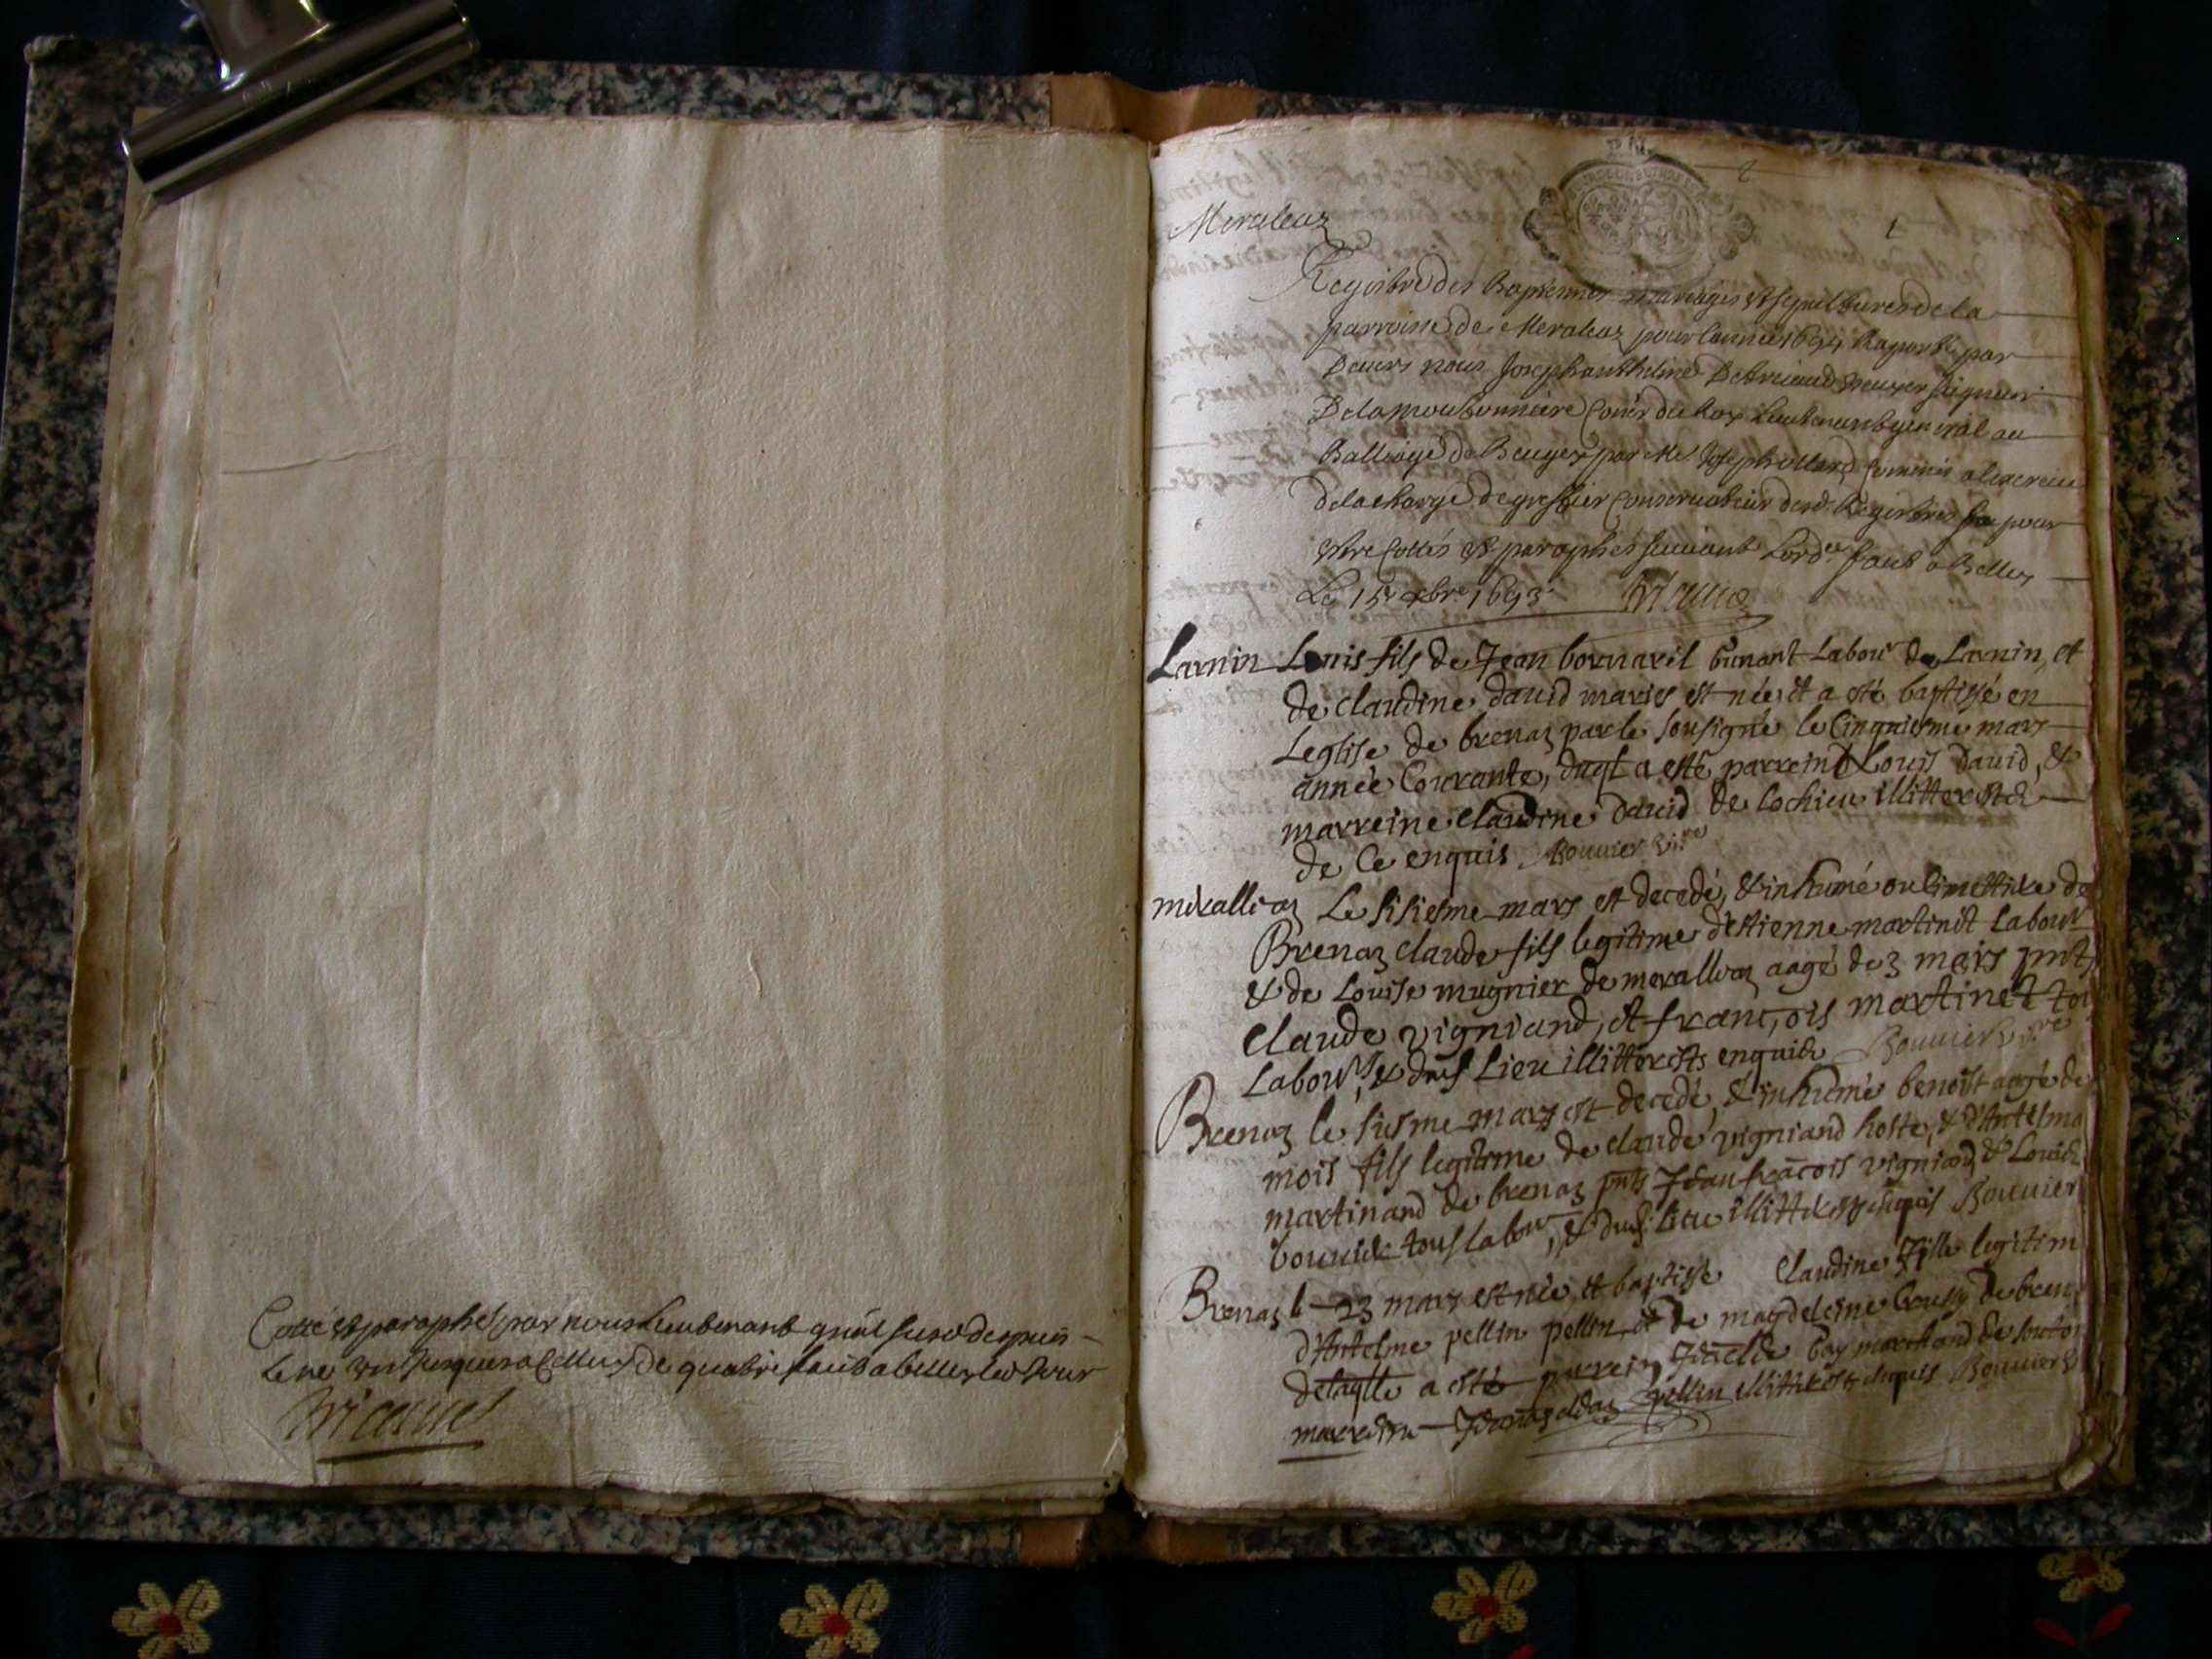 Cotté et paraphé par nous Lieutenant gnal susd depuis
le ne un jusques a Celluy de quatre fait a belley led Jour
Meraleaz
1
Registre des Baptesmes mariages et sepultures de la
parroisse de Meraleaz pour l'année 1694 Raporté par
Devers nous Joseph anthelme seigneur
Dela Conér du Roy Lieutenant general au
Balliage de Beugey par Me Joseph Commis a lexercice
dela charge de greffier Conservateur desd. Registres pour
estre Cottés et paraphés suivant Lordce fait a Belley
Le 15 xbre 1693
Larnin Louis fils de Jean bornarel Labour de Larnin, et
de claudine david mariés est née et a esté baptissé en
Leglise de brenaz par le sousigné le Cinquiesme mars
année Courante, duql a esté parrein Louis david, &
marreine claudine david de lochieu illitterés
de Ce enquis Bouvier vire
meralleaz Le sisiesme mars est decedé, & inhumé au Cimettiere de
Brenaz claude fils legitime d'estienne martinet Labour
& de Louise mugnier de meralleaz aagé de 3 mois pnts
claude vigniand, et françois martinet tous
Labours, & dud Lieu illitterés enquis Bouvier vire
Brenaz le sisme mars est decedé, & inhumé benoist aagé de
mois fils legitime de claude vigniand hoste, & d'Antelma
martinand de brenaz pnts Jean françois vigniand & Louis
bouvier tous labour, & dud. lieu illitterés enquis Bouvier
Brenaz le 23 mars est née, et baptissé Claudine fille legitim
d'Antelme pellin pellin et de magdeleine de bren
delaqlle a esté parrein bay marchand de
marreine pellin illitterés enquis Bouvier